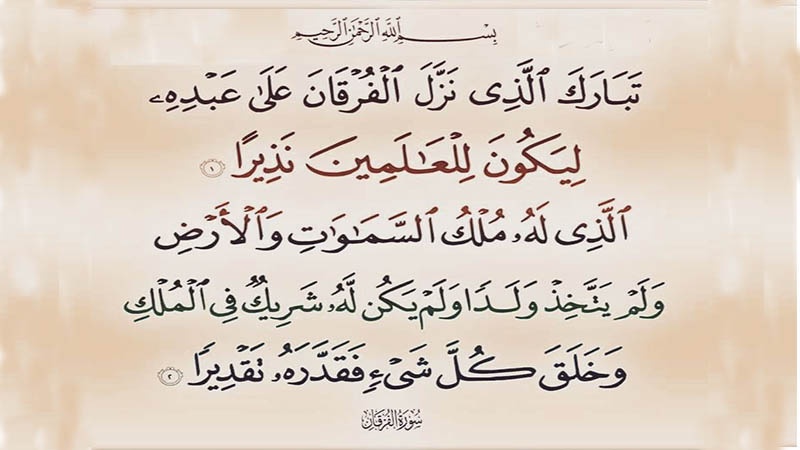 بِسْمِ ٱللَّهِ ٱلرَّحْمَٰنِ ٱلرَّحِيمِ
تَبَارَكَ ٱلَّذِى نَزَّلَ ٱلْفُرْقَانَ عَلَىٰ عَبْدِهِۦ
لِيَكُونَ لِلْعَـٰلَمِينَ نَذِيرًا ١
ٱلَّذِى لَهُۥ مُلْكُ ٱلسَّمَـٰوَٰتِ وَٱلْأَرْضِ
وَلَمْ يَتَّخِذْ وَلَدًا وَلَمْ يَكُن لَّهُۥ شَرِيكٌ فِى ٱلْمُلْكِ
وَخَلَقَ كُلَّ شَىْءٍ فَقَدَّرَهُۥ تَقْدِيرًا ٢
سُورَةُ الفُرْقَان